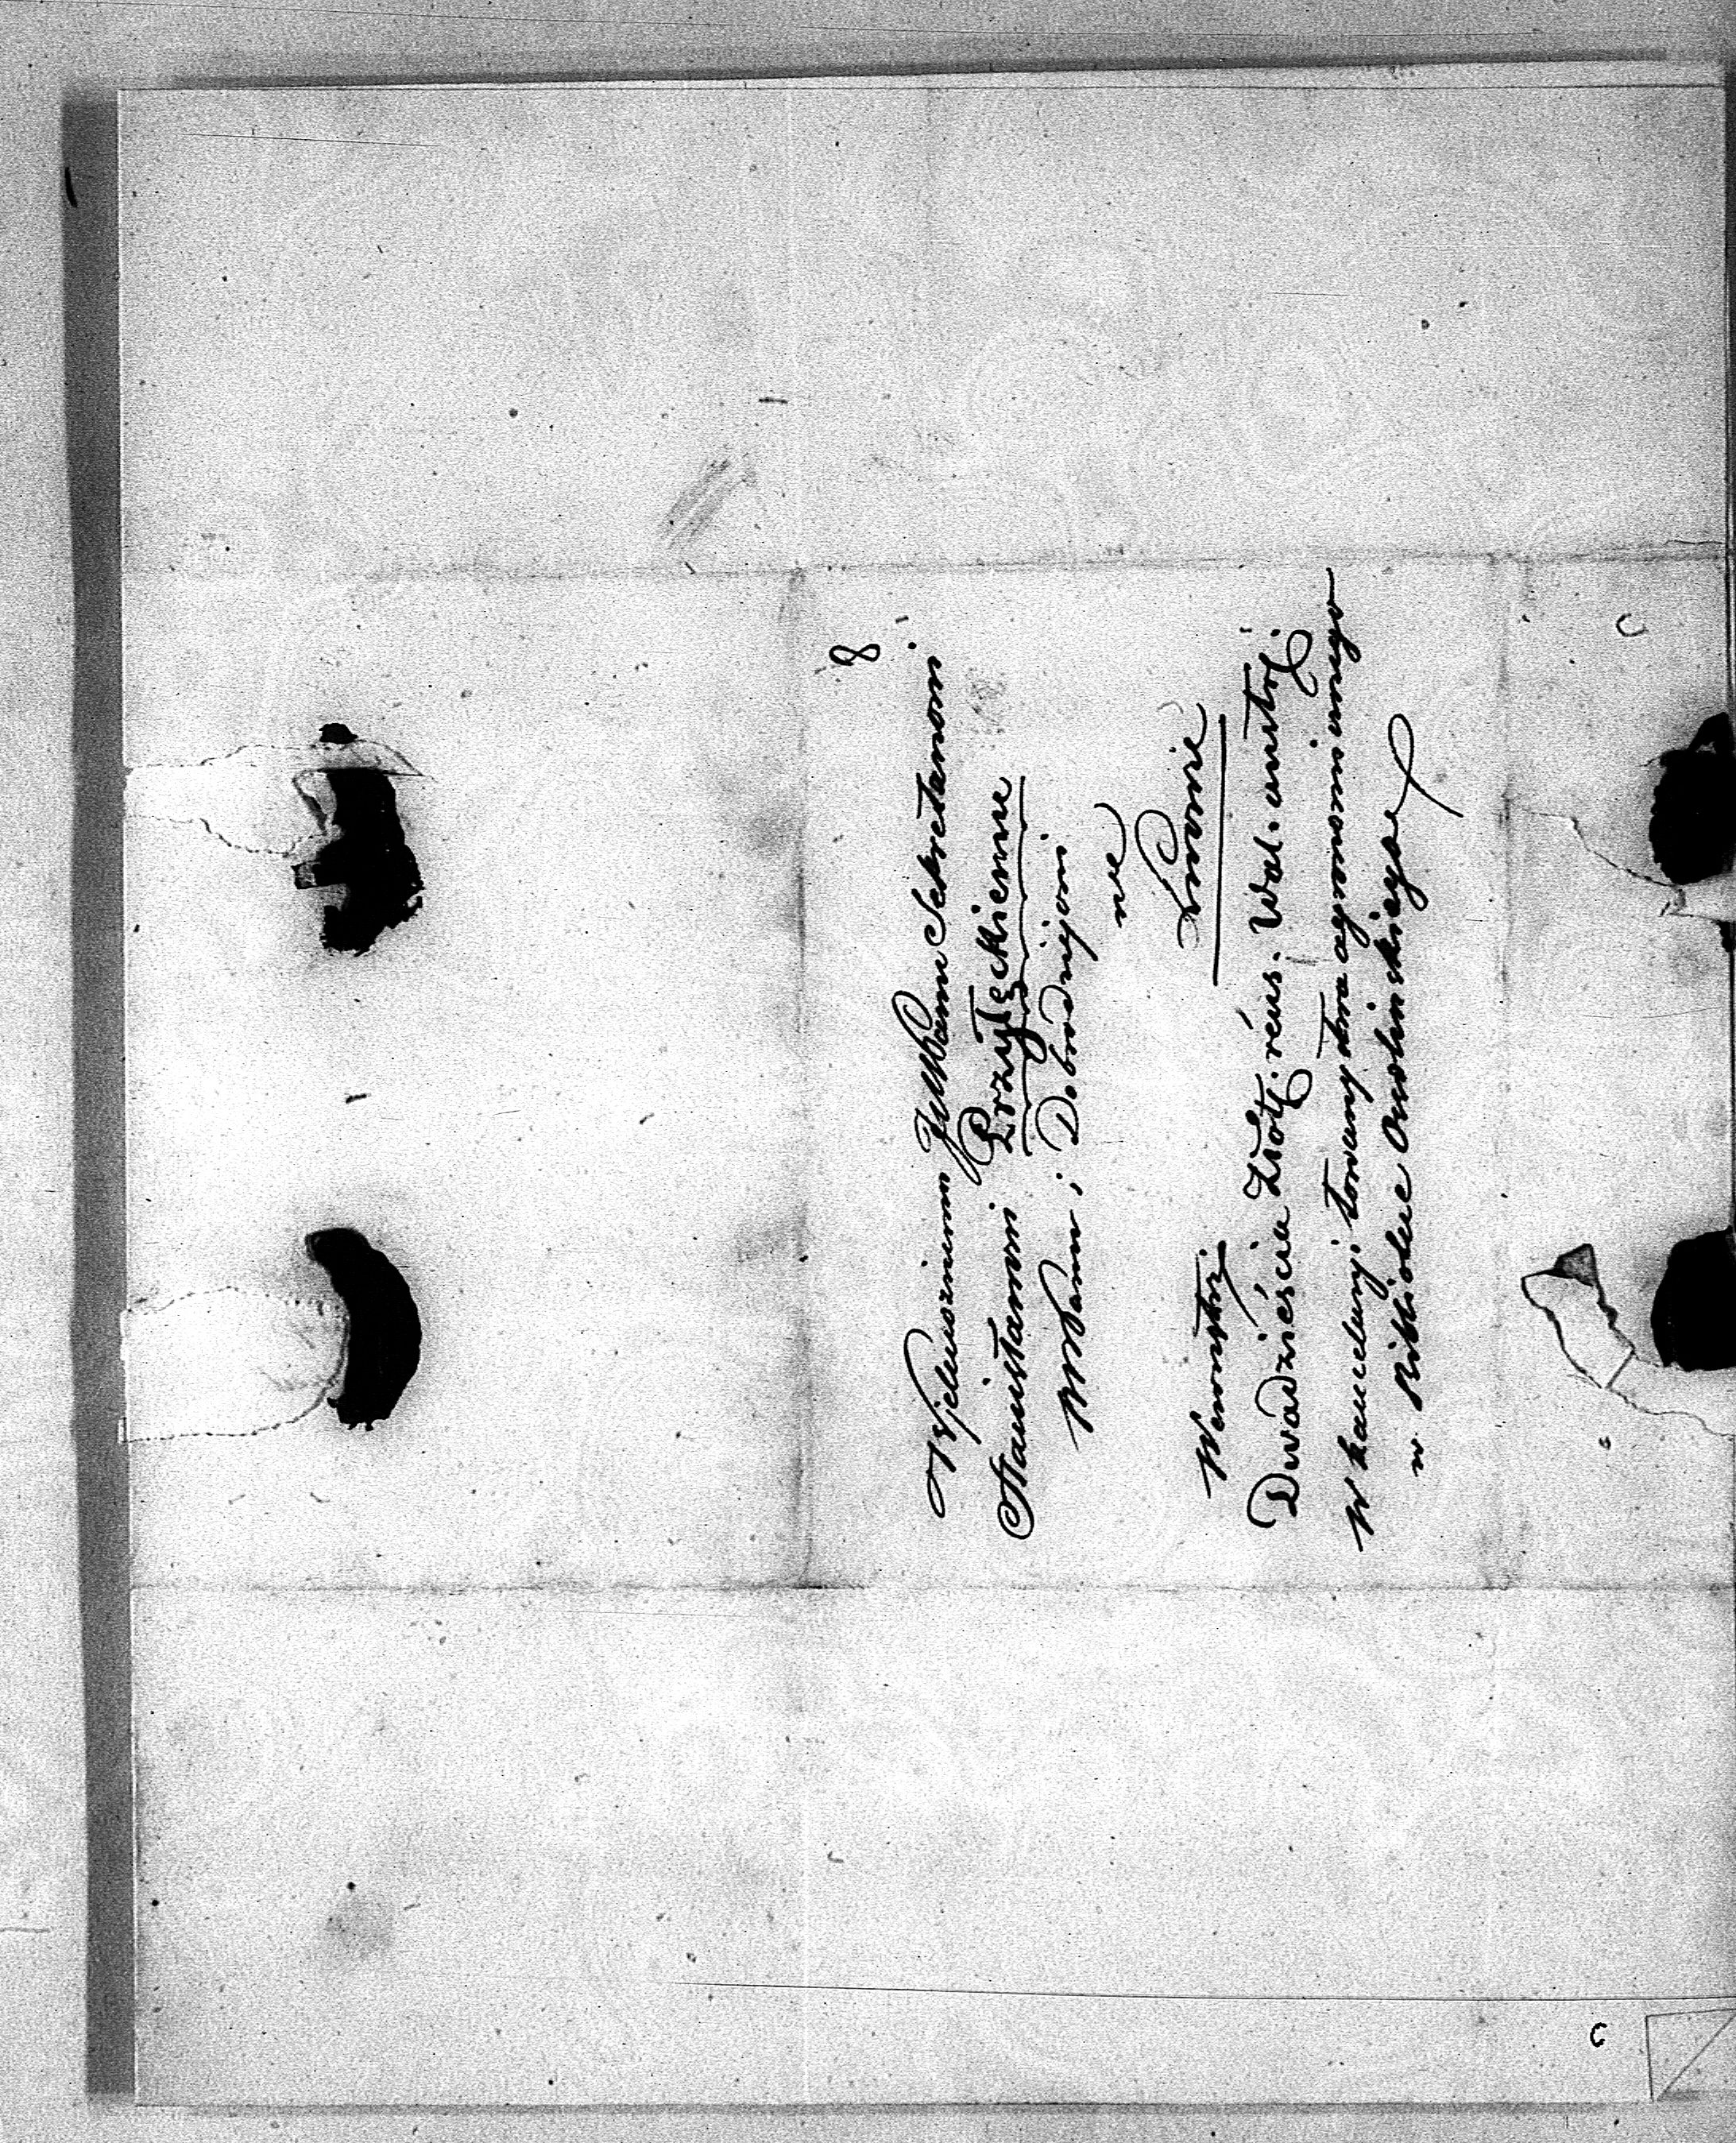 8
Wielmożnemu JMPanu Sekretarzowi
Stanisławowi Przyłęckiemu
WPanu i Dobrodziejowi
we
Lwowie
Wewnątrz
Dwadzieścia Złoty. reńs. Wal. austry.
W kancelaryi towarzystwa agronomicznego
w Bibliotece Ossolińskiego